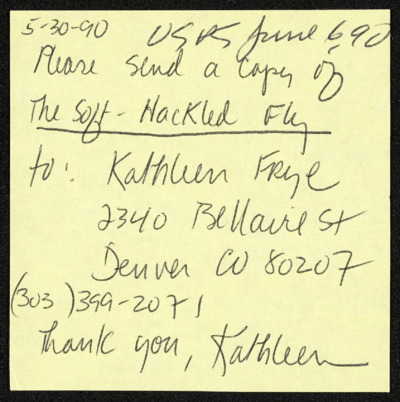 5-30-90 USPS June 6, 90
Please send a copy of
The Soft-Hackled Fly
to: Kathleen Frye
2340 Bellaire St
Denver CO 80207
(303) 399-2071
Thank you, Kathleen